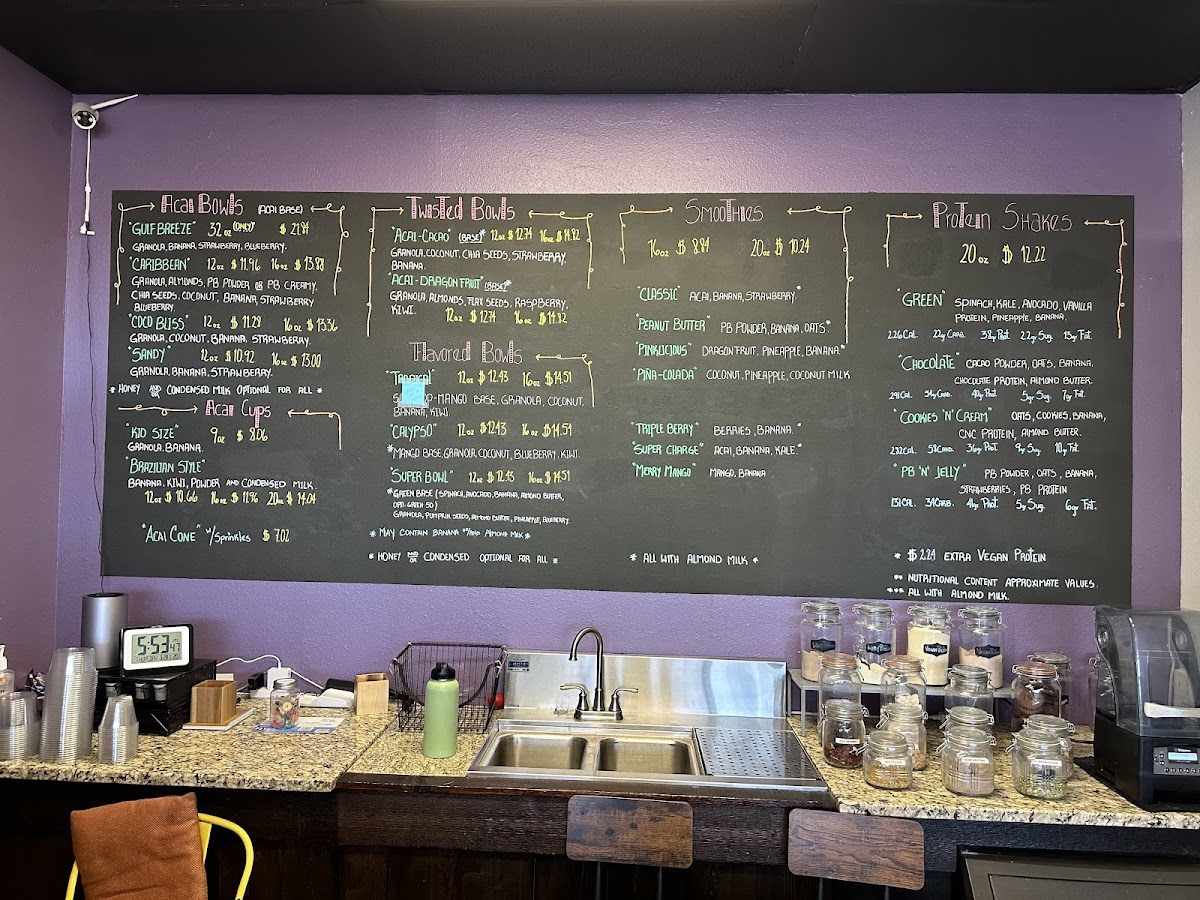 Acai Bowls (Acai Base)
"Gulf Breeze" 32oz (Only) $21.84
Granola, Banana, Strawberry, Blueberry.
"Caribbean" 12oz $11.96 16oz $13.88
Granola, Almonds, PB Powder or PB Creamy,
Chia Seeds, Coconut, Banana, Strawberry
Blueberry.
"Coco Bliss" 12oz $11.28 16oz $13.36
Granola, Coconut, Banana, Strawberry.
"Sandy" 12oz $10.92 16oz $13.00
Granola, Banana, Strawberry.
* Honey and/or Condensed Milk Optional for All *
Acai Cups
"Kid Size" 9oz $8.06
Granola, Banana.
"Brazilian Style"
Banana, Kiwi, Powder and Condensed Milk.
12oz $10.66 16oz $11.96 20oz $14.04
"Acai Cone" w/Sprinkles $7.02
Twisted Bowls
"Acai-Cacao" (Base)* 12oz $12.74 16oz $14.82
Granola, Coconut, Chia Seeds, Strawberry,
Banana.
"Acai-Dragon Fruit" (Base)*
Granola, Almonds, Flax Seeds, Raspberry,
Kiwi. 12oz $12.74 16oz $14.82
Flavored Bowls
"Tropical" 12oz $12.43 16oz $14.51
-Mango Base, Granola, Coconut,
Banana, Kiwi.
"Calypso" 12oz $12.43 16oz $14.51
*Mango Base, Granola, Coconut, Blueberry, Kiwi.
"Super Bowl" 12oz $12.43 16oz $14.51
*Green Base (Spinach, Avocado, Banana, Almond Butter,
Opti. Green 50)
Granola, Pumpkin Seeds, Almond Butter, Pineapple, Blueberry.
* May Contain Banana and/or Almond Milk *
* Honey and/or Condensed Optional for All *
Smoothies
16oz $8.84 20oz $10.24
"Classic" Acai, Banana, Strawberry.*
"Peanut Butter" PB Powder, Banana, Oats*
"Pinklicious" Dragon Fruit, Pineapple, Banana.*
"Piña-Colada" Coconut, Pineapple, Coconut Milk
"Triple Berry" Berries, Banana.*
"Super Charge" Acai, Banana, Kale.*
"Merry Mango" Mango, Banana
* All with Almond Milk *
Protein Shakes
20oz $12.22
"Green" Spinach, Kale, Avocado, Vanilla
Protein, Pineapple, Banana.
226 Cal. 22g Carb. 38g Prot. 22g Sug. 13g Fat.
"Chocolate" Cacao Powder, Oats, Banana,
Chocolate Protein, Almond Butter.
291 Cal. 34g Carb. 40g Prot. 5gr Sug. 7gr Fat.
"Cookies 'N' Cream" Oats, Cookies, Banana,
CNC Protein, Almond Butter.
232 Cal. 58 Carb. 36g Prot. 9g Sug. 10g Fat.
"PB 'N' Jelly" PB Powder, Oats, Banana,
Strawberries, PB Protein
151 Cal. 34 Carb. 41gr Prot. 5g Sug. 6gr Fat.
* $2.24 Extra Vegan Protein
** Nutritional Content Approximate Values.
*** All with Almond Milk.
5:53 47